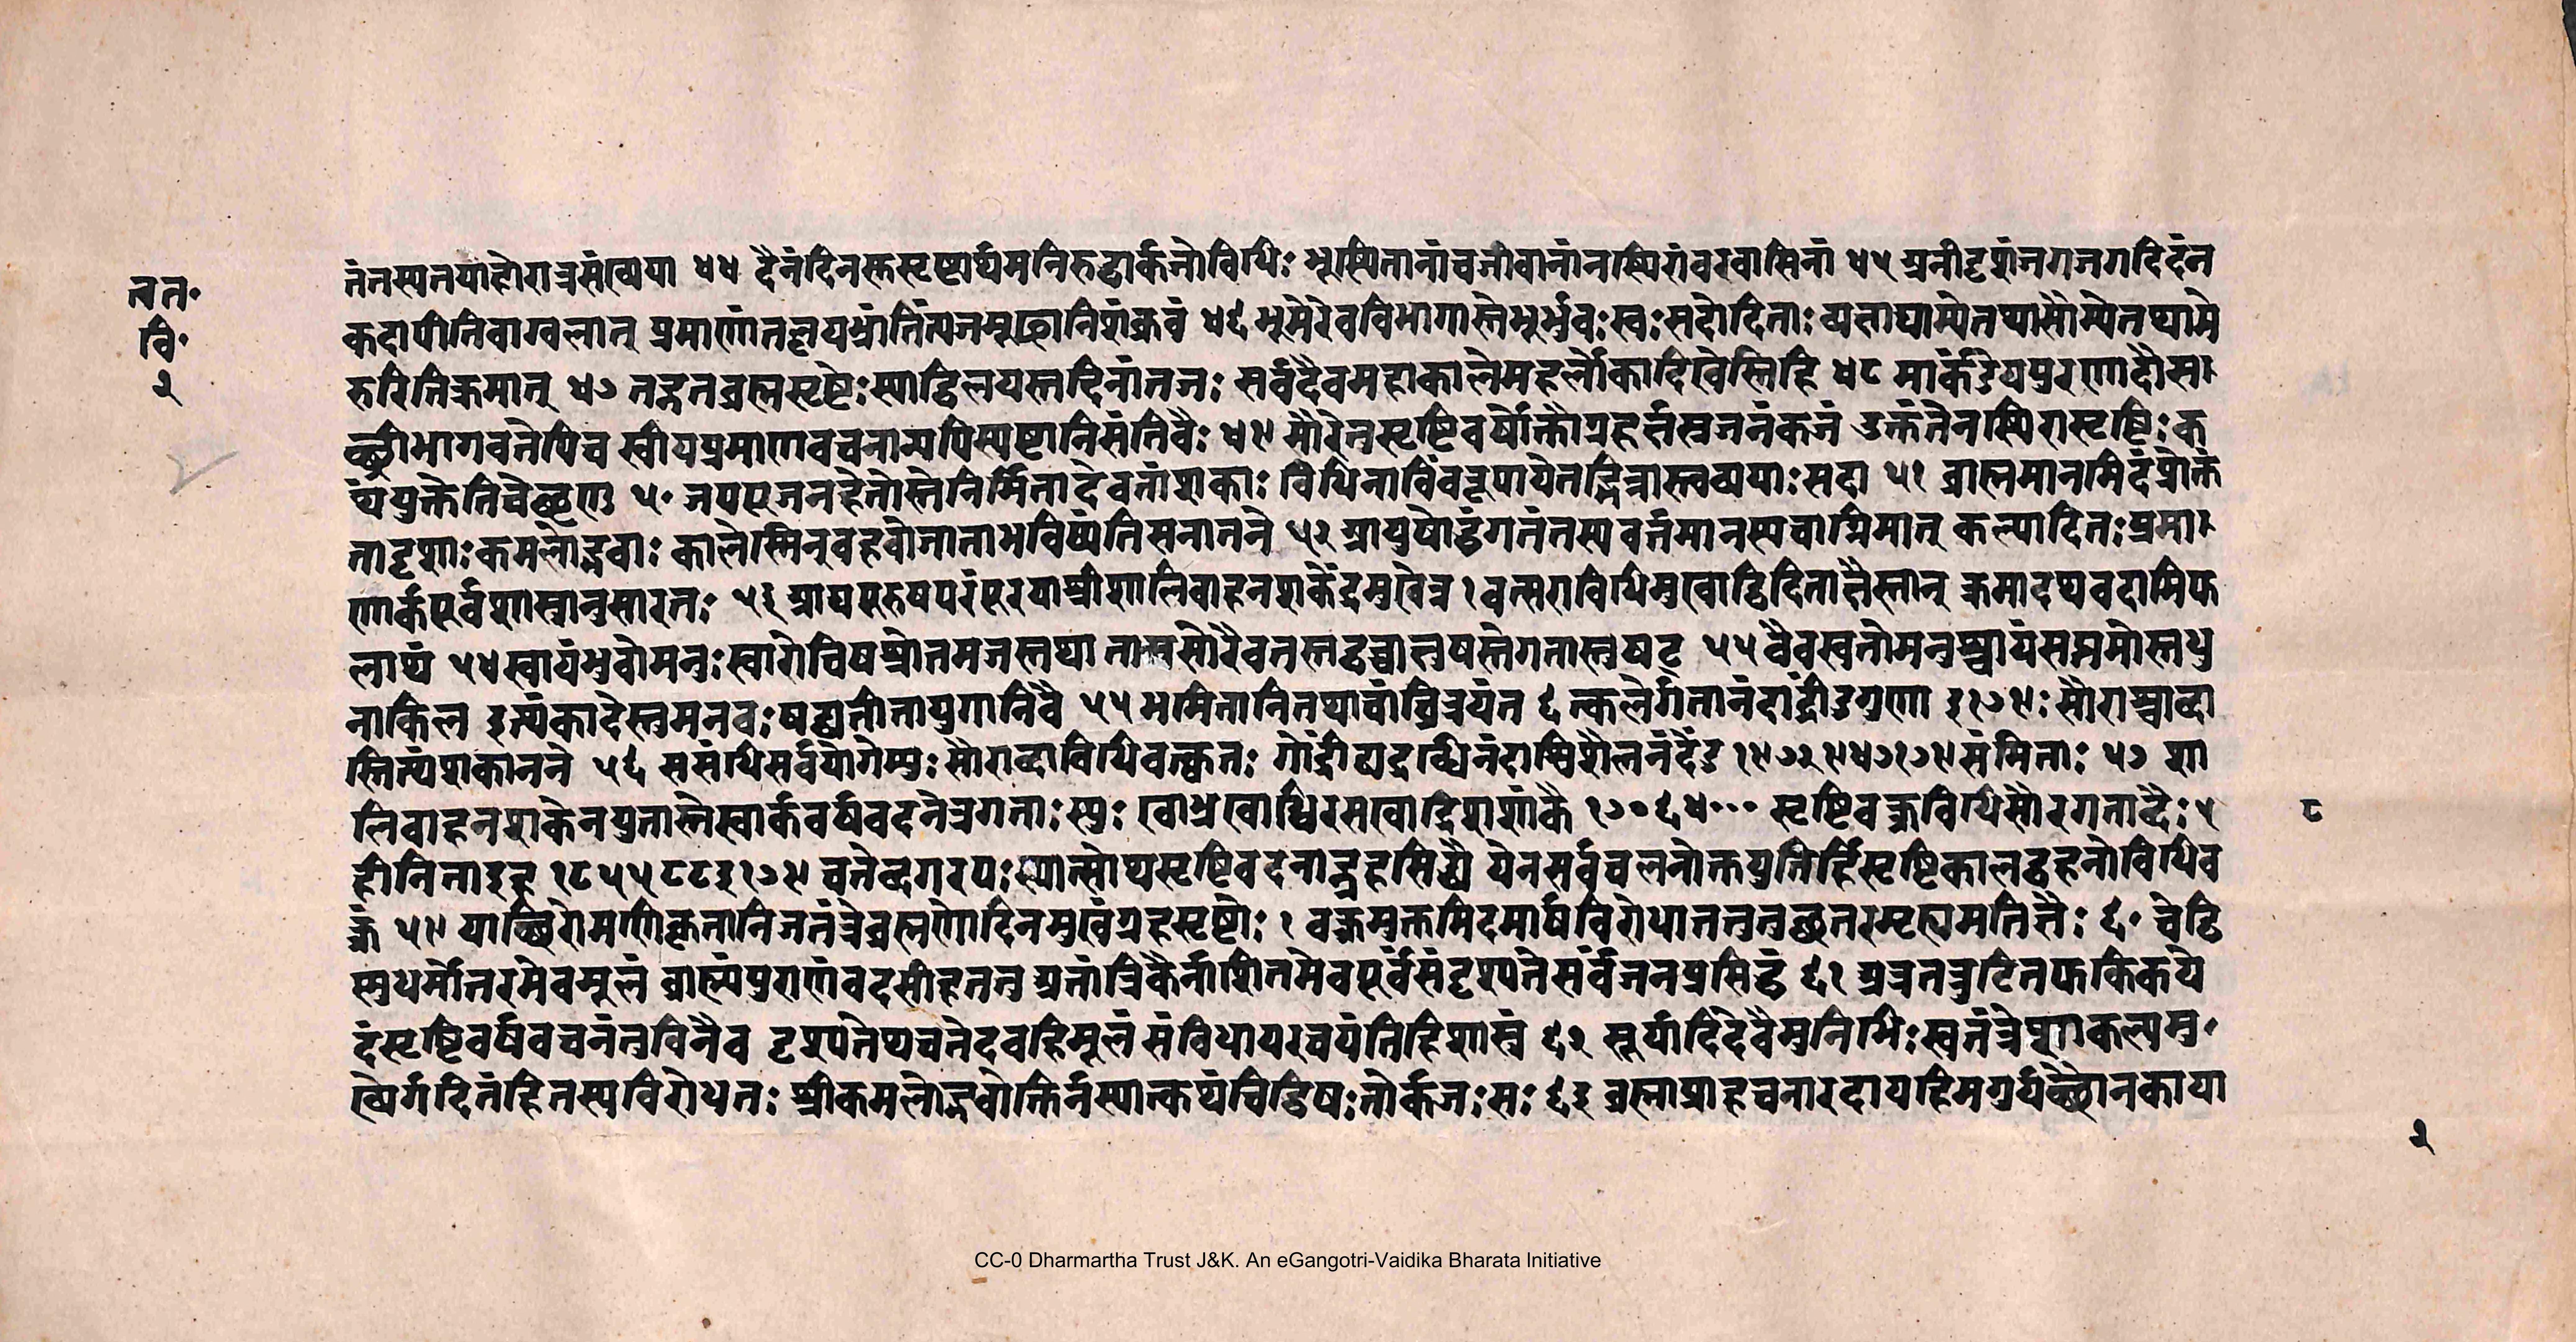 तत.
वि.
२
तंतस्यतयाहोरात्रसंख्यया ४४ दैनंदिनस्तसृष्ट्यर्थमनिरुद्धार्कजोविधिः भूस्थितानांचजीवानांनस्थिरांबरवासिनां ४५ अनीदृशंजगजगदिदंन
कदापीतिवाग्बलात् प्रमाणंतल्लयभ्रांतिंत्यजमूढानिशंक्रवं ४६ भूमेरेवविभागास्तेभूर्भुवःस्वःसदोदिताः व्यत्ताद्याम्येतथासौम्येतथामे
रुरितिक्रमात् ४७ तद्गतब्रह्मसृष्टेःस्याद्विलयस्तद्दिनांतजः सर्वदैवमहाकालेमहर्लोकादिखेस्तिहि ४८ मार्कंडेयपुरणादौसा
च्छ्रीभागवतेपिच स्वीयप्रमाणवचनान्यपिस्पष्टानिसंतिवै: ४९ सौरेतुसृष्टिवर्षोक्तौग्रहर्त्तस्रजनंकजं उक्तंतेनस्थिरासृष्टिःक
थंयुक्तेतिचेच्छृणु ५० जपपूजनहेतोस्तेनिर्मितादेवतांशकाः विधिनाविंवरूपायेतद्भिन्नास्त्वव्ययाःसदा ५१ ब्राह्ममानमिदंप्रोक्तं
तादृशाःकमलोद्भवाः कालेस्मिन्बहवोजाताभविष्यंतिसनातने ५२ आयुषोर्द्धंगतंतस्यवर्तमानस्यवाग्निमात् कल्पादितःप्रमा
णार्कपूर्वशास्त्रानुसारतः ५३ आद्यपुरुषपरंपरयाश्रीशालिवाहनशकेंद्रमुखेत्र १ वत्सराविधिमुखोद्विदितातैस्तान् क्रमादथवदामिफ
लाथं ५४ स्वायंभुवोमनुःस्वारोचिषश्चोतमजस्तथा तामसोरैवतस्तद्वच्चाक्षुषस्तेगतास्तुषट् ५५ वैवस्वतोमनुश्चायंसप्तमोस्तथु
नाकिल इत्थंकादेस्तुमनवःषट्व्यतीतायुगानिवै ५५ भमितानितथाचांघ्रित्रयंत ६ त्कलेर्गतानंदाद्रींडुगुणा ३१७९ः सौराश्चाब्दा
स्तित्थंशकानने ५६ ससंधिसर्वयोगेस्युःसौराब्दाविधिवत्कृतः गोद्रींद्व्यद्रब्धिनंदाश्विशैलनंदैंदु १९७२९४७१७९संमिताः ५७ शा
लिवाहनशकेनयुतास्तेस्वार्कवर्षवदनेत्रगताःस्युः खाभ्रखाब्धिरसखाद्रिशशांकै १७०६४००० सृष्टिवक्रविधिसौरगताब्दैः ५
८
हीनितादृह १९५५८८३१७९ चतेब्दगरपःस्यात्सोथसृष्टिवदनाद्ग्रहसिद्ध्यै येनसर्वचलनोक्तयुतिर्हिसृष्टिकालद्रहतोविधिव
क्रं ५९ याच्छिरोमणिकृतानिजतंत्रेब्रह्मणोदिनमुखंग्रहसृष्टोः १ वक्रमुक्तमिदमार्षविरोधाततुतुच्छतरमृह्यमतितैः ६० चेद्वि
स्मुधर्मोत्तरमेवमूलं ब्राह्म्यंपुराणंवदसीहततु अतांत्रिकैर्नाशितमेवपूर्वंसंदृश्यतेसर्वजनप्रसिद्धं ६१ अत्रतत्रुटितफक्किकये
दंसृष्टिवर्षवचनंतुविनैव दृश्यतेथचतेदवहिमूलं संविधायरचयंतिहिशास्त्रं ६२ सूर्यादिदेवैमुनिभिःस्वतंत्रेप्राणाकल्पमु
ख्येर्गदितंहितस्यविरोधतः श्रीकमलोद्भवोक्तिर्नस्यात्कथंचिद्विषःतोर्कजःसः ६३ ब्रह्माप्राहचनारदायहिमगुर्यच्छौनकाया
२
CC-0 Dharmartha Trust J&K. An eGangotri-Vaidika Bharata Initiative